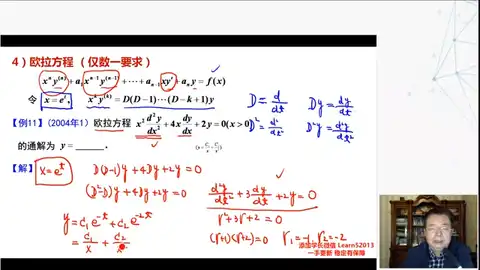 4）欧拉方程 （仅数一要求）
xⁿy⁽ⁿ⁾+a₁xⁿ⁻¹y⁽ⁿ⁻¹⁾+⋯+aₙ₋₁xy′+aₙy=f(x)
令 x=eᵗ, xᵏy⁽ᵏ⁾=D(D−1)⋯(D−k+1)y
D=d/dt Dy=dy/dt
D²=d²/dt² D²y=d²y/dt²
【例11】（2004年1） 欧拉方程 x² d²y/dx² + 4x dy/dx + 2y=0(x>0)
的通解为 y=______.
【解】 x=eᵗ D(D-1)y+4Dy+2y=0
(D²-D)y+4Dy+2y=0
d²y/dt²+3dy/dt+2y=0
r²+3r+2=0
(r+1)(r+2)=0 r₁=-1, r₂=-2
y=c₁e⁻ᵗ+c₂e⁻²ᵗ
=c₁/x+c₂/x
添加学长微信 Learn52013
一手更新 稳定有保障